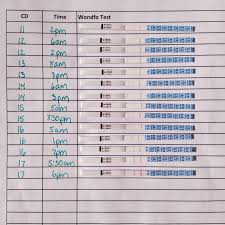 CD Time Wondfo Test
11 2pm
12 6am
12 2pm
13 8am
13 3pm
14 6am
14 3pm
15 5am
15 330pm
16 5am
16 1pm
16 7pm
17 5:30am
17 6pm